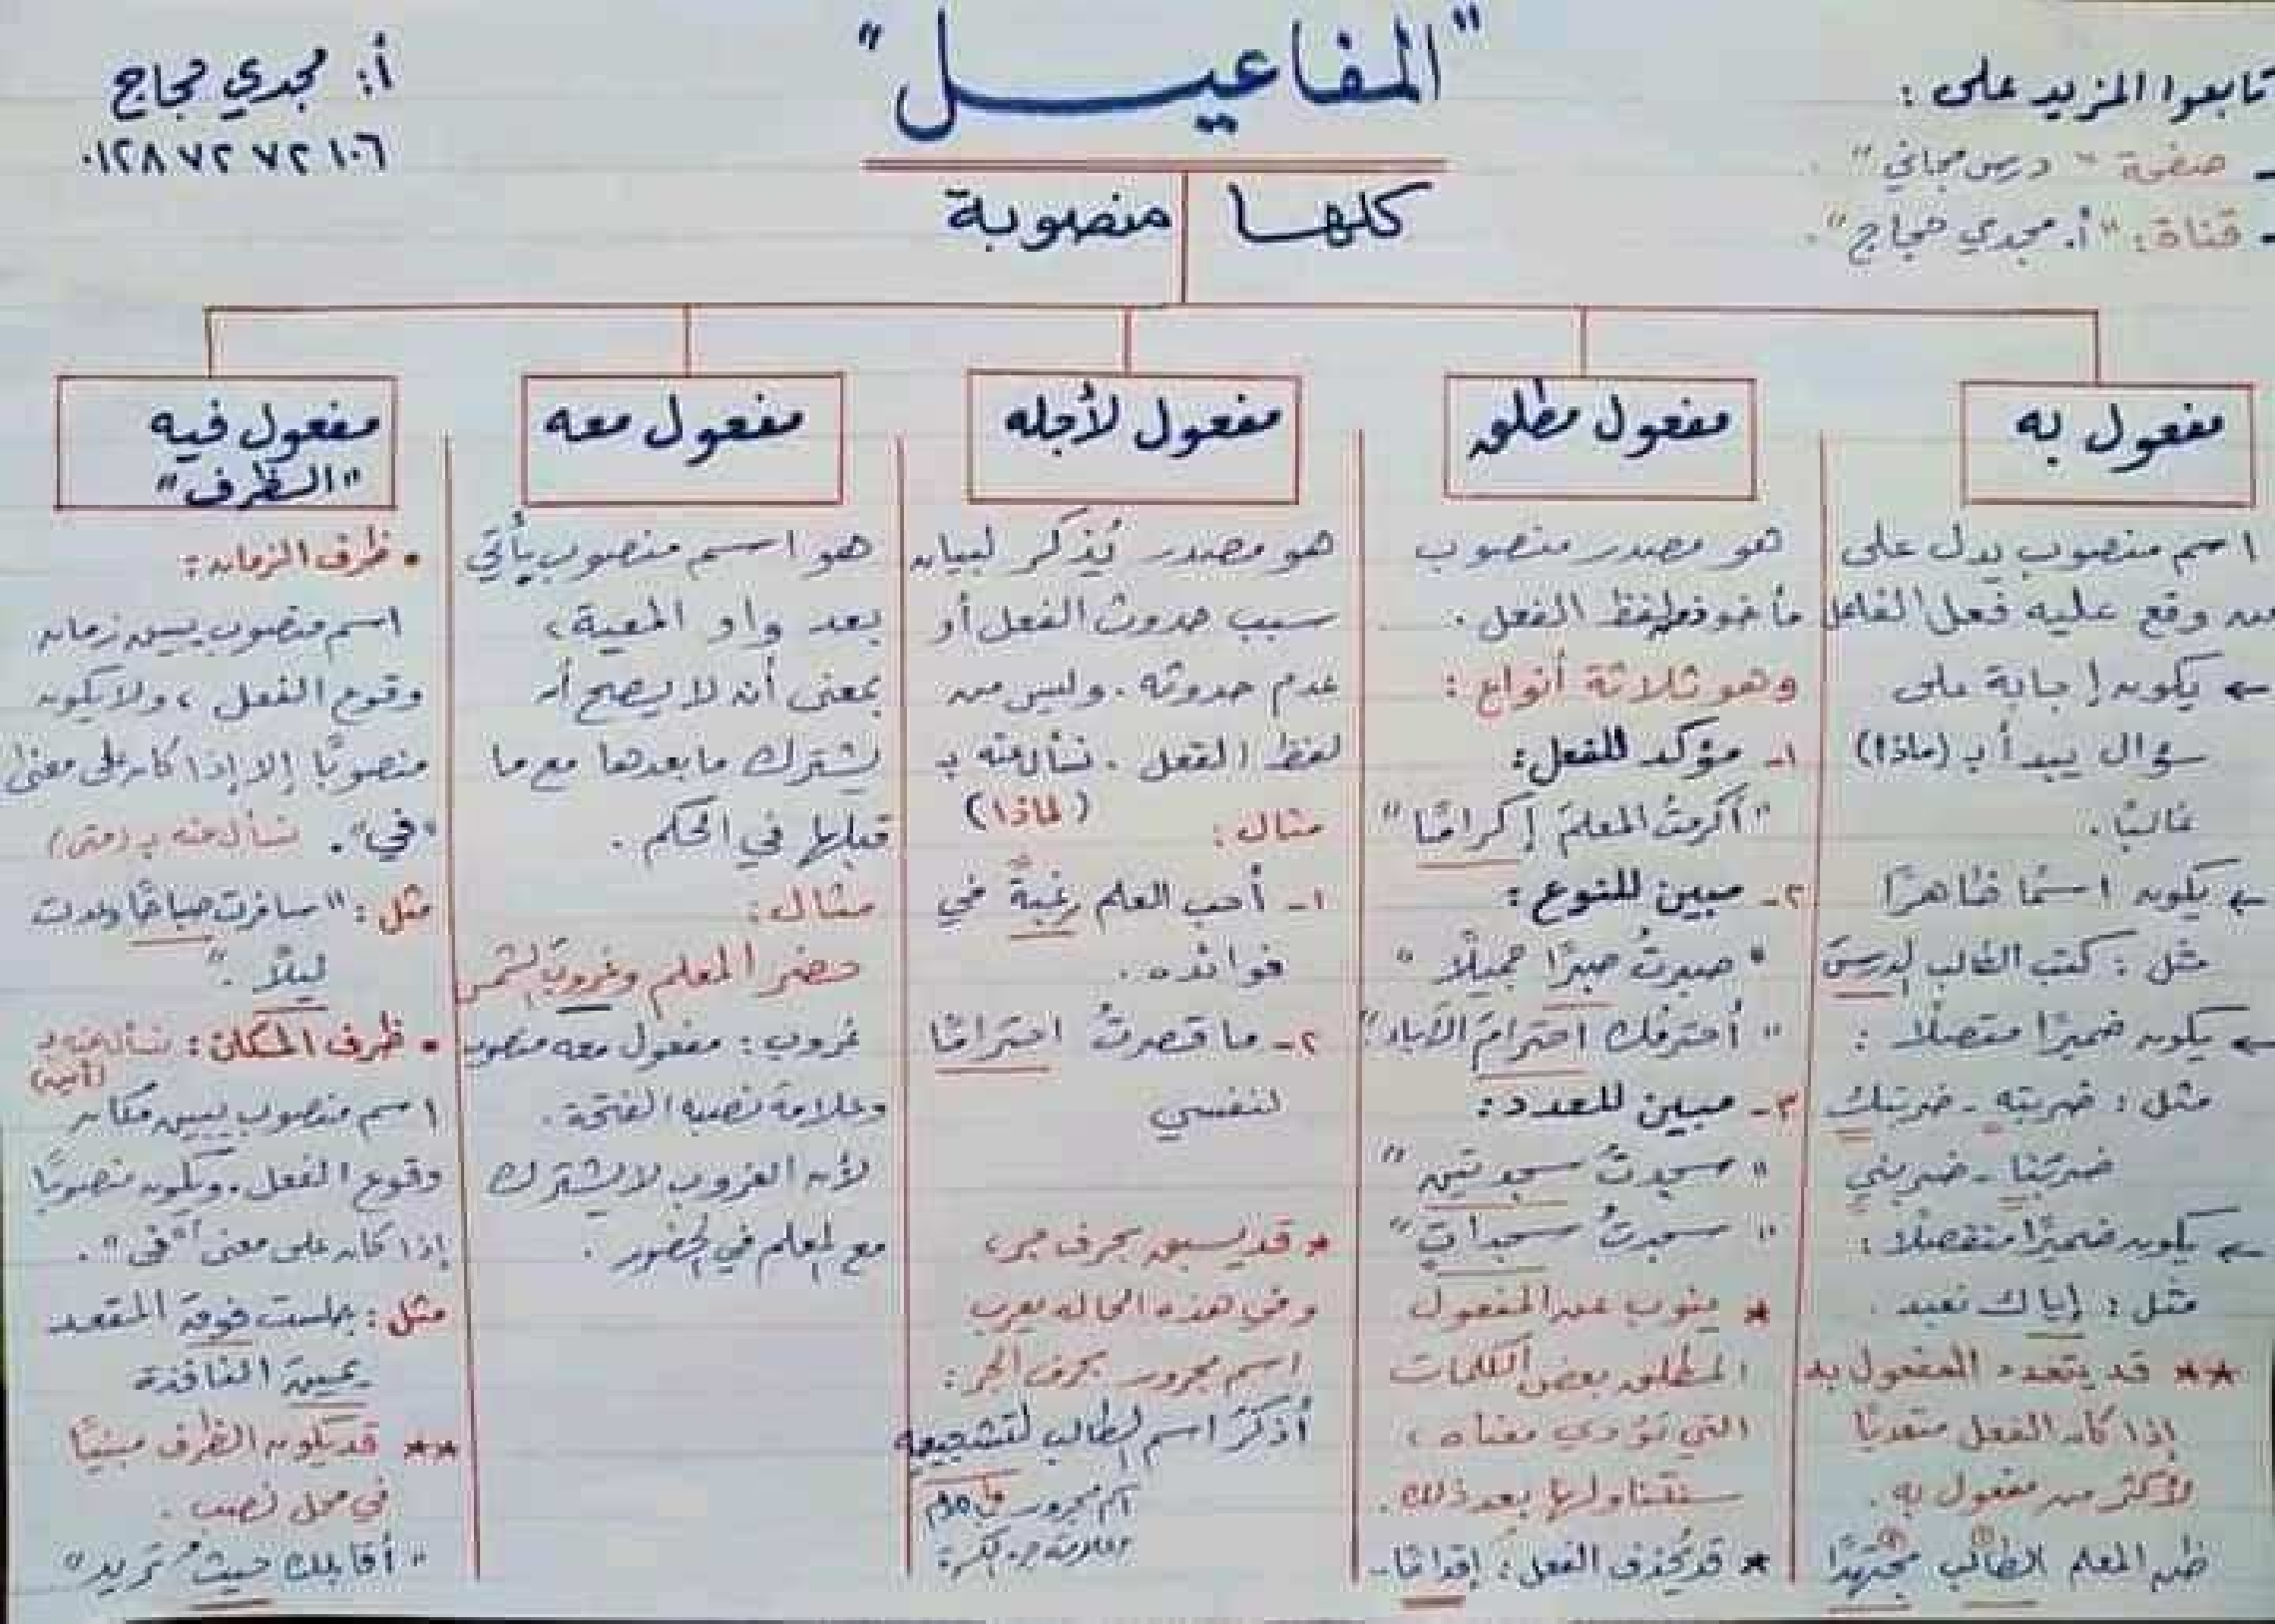 "المفاعيل"
كلها منصوبة
تابعوا المزيد على :
- صفحة " درس مجاني " .
- قناة : " أ. مجدي حجاج " .
أ: مجدي حجاج
٠١٢٨ ٧٢ ٧٢ ١٠٦
مفعول به
اسم منصوب يدل على
من وقع عليه فعل الفاعل
← يكون إجابة على
سؤال يبدأ بـ (ماذا)
غالبًا .
← يكون اسمًا ظاهرًا
مثل : كتب الطالب الدرسَ
← يكون ضميرًا متصلًا :
مثل : ضربته - ضربتك
ضربتنا - ضربني
← يكون ضميرًا منفصلًا :
مثل : إياك نعبد .
** قد يتعدد المفعول به
إذا كان الفعل متعديًا
لأكثر من مفعول به .
ظن المعلم الطالب ① مجتهدًا ②
مفعول مطلق
هو مصدر منصوب
مأخوذ من لفظ الفعل .
وهو ثلاثة أنواع :
١- مؤكد للفعل :
" أكرمتُ المعلمَ إكرامًا "
٢- مبين للنوع :
" صبرتُ صبرًا جميلًا "
" أحترمُك احترامَ الآباء "
٣- مبين للعدد :
" سجدتُ سجدتين "
" سجدتُ سجداتٍ "
* ينوب عن المفعول
المطلق بعض الكلمات
التي تؤدي معناه ،
سنتناولها بعد ذلك .
* قد يُحذف الفعل : إقدامًا -
مفعول لأجله
هو مصدر يُذكر لبيان
سبب حدوث الفعل أو
عدم حدوثه . وليس من
لفظ الفعل . نسأل عنه بـ
(لماذا)
مثال :
١- أحب العلم رغبةً في
فوائده .
٢- ما قصرتُ احترامًا
لنفسي
* قد يسبق بحرف جر ،
وفي هذه الحالة يعرب
اسم مجرور بحرف الجر :
أذكرُ اسم الطالب لتشجيعه
اسم مجرور باللام
وعلامة جره الكسرة
مفعول معه
هو اسم منصوب يأتي
بعد واو المعية ،
بمعنى أنه لا يصح أن
يشترك ما بعدها مع ما
قبلها في الحكم .
مثال :
حضر المعلم وغروبَ الشمس
غروب : مفعول معه منصوب
وعلامة نصبه الفتحة .
لأن الغروب لا يشترك
مع المعلم في الحضور .
مفعول فيه
"الظرف"
• ظرف الزمان :
اسم منصوب يبين زمان
وقوع الفعل ، ولا يكون
منصوبًا إلا إذا كان على معنى
"في" . نسأل عنه بـ (متى)
مثل : " سافرت صباحًا وعدت
ليلًا . "
• ظرف المكان : نسأل عنه بـ
(أين)
اسم منصوب يبين مكان
وقوع الفعل . ويكون منصوبًا
إذا كان على معنى "في" .
مثل : جلست فوقَ المقعد
يمينَ النافذة
** قد يكون الظرف مبنيًا
في محل نصب .
" أقابلك حيثُ تريد "